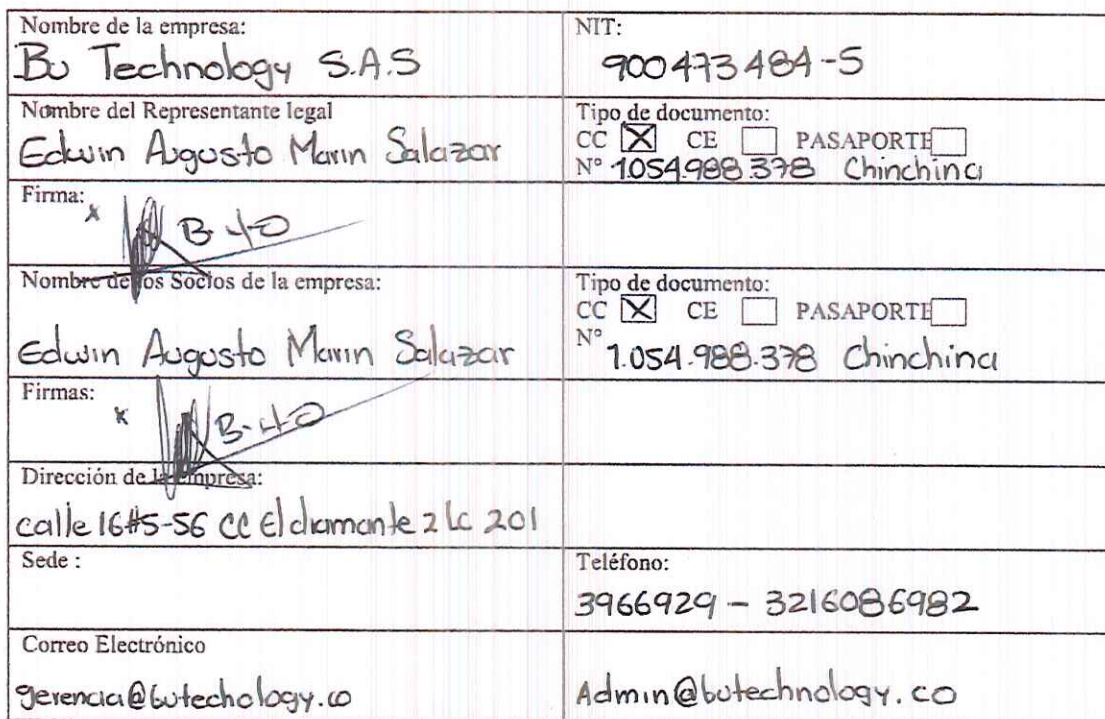 Nombre de la empresa:
Bu Technology S.A.S
NIT:
900473484-5
Nombre del Representante legal
Edwin Augusto Marin Salazar
Tipo de documento:
CC X CE PASAPORTE
N° 1.054.988.378 Chinchina
Firma:
x B-40
Nombre de los Socios de la empresa:
Edwin Augusto Marin Salazar
Tipo de documento:
CC X CE PASAPORTE
N° 1.054.988.378 Chinchina
Firmas:
x B-40
Dirección de la empresa:
calle 16#5-56 CC El diamante 2 Lc 201
Sede :
Teléfono:
3966929 - 3216086982
Correo Electrónico
gerencia@butechology.co
Admin@butechnology.co